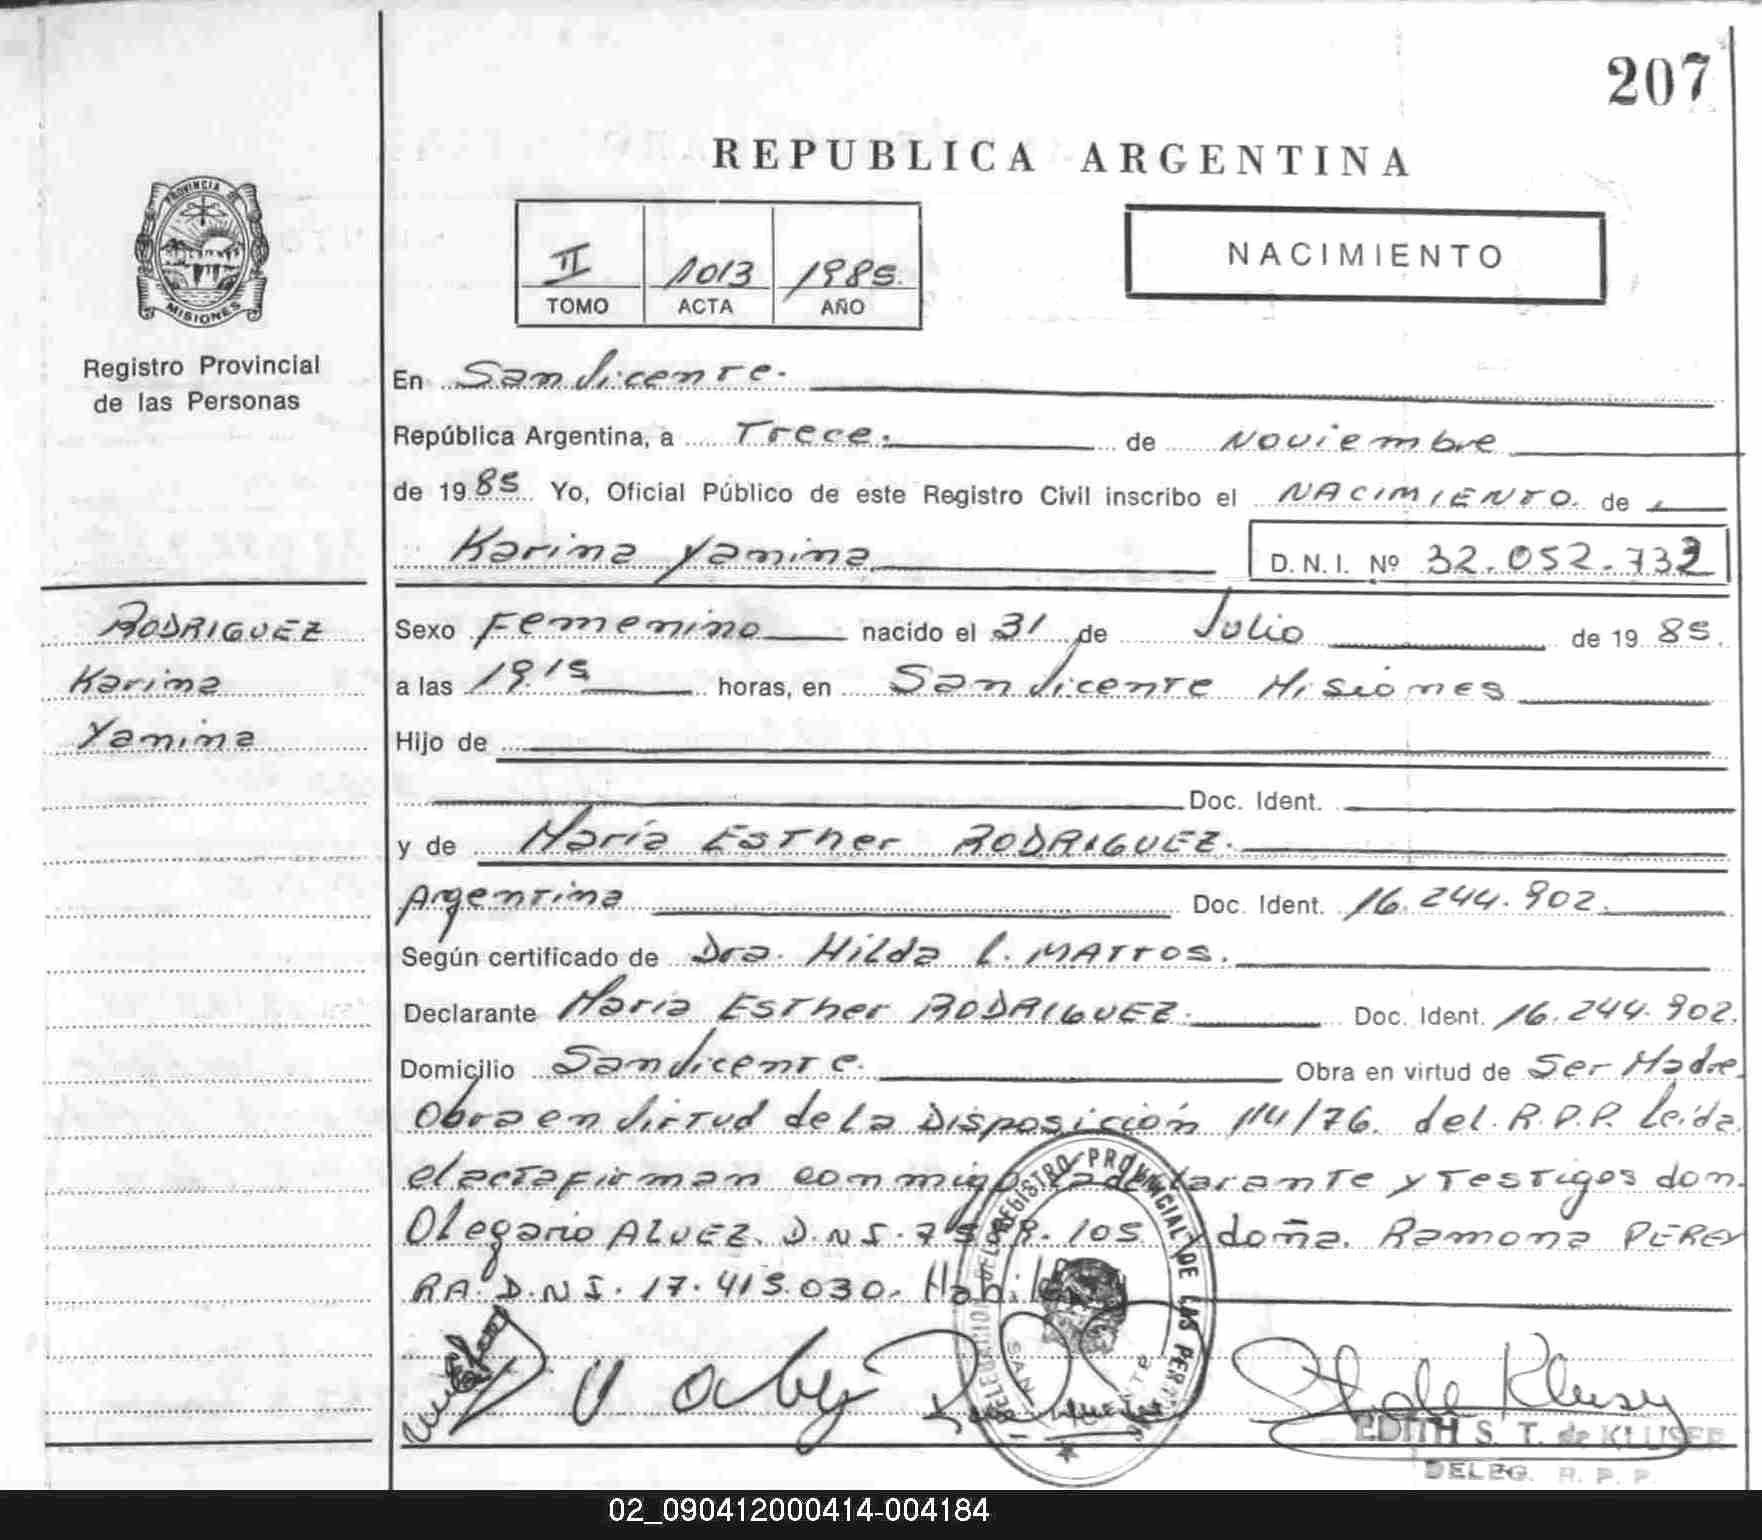 207
REPUBLICA ARGENTINA
PROVINCIA DE
MISIONES
Registro Provincial
de las Personas
II 1013 1985
TOMO ACTA AÑO
NACIMIENTO
En San Vicente.
República Argentina, a Trece. de Noviembre
de 1985 Yo, Oficial Público de este Registro Civil inscribo el NACIMIENTO. de
Karina Yanina
D. N. I. Nº 32.052.733
RODRIGUEZ
Karina
Yanina
Sexo Femenino nacido el 31 de Julio de 1985.
a las 19.15 horas, en San Vicente Misiones
Hijo de
Doc. Ident.
y de María Esther RODRIGUEZ.
Argentina Doc. Ident. 16.244.902.
Según certificado de Dra. Hilda L. MATTOS.
Declarante María Esther RODRIGUEZ. Doc. Ident. 16.244.902.
Domicilio San Vicente. Obra en virtud de Ser Madre
Obra en Virtud de la Disposición 114/76. del. R.P.P. Leída
el acta firman conmigo la declarante y testigos don.
Olegario ALVEZ. D.N.I. 105 y doña. Ramona PEREY
RA. D.N.I. 17.415.030. Habil
DELEGACION DEL REGISTRO PROVINCIAL DE LAS PERSONAS
SAN VICENTE
EDITH S. T. de KLUSER
DELEG. R. P. P.
02_090412000414-004184